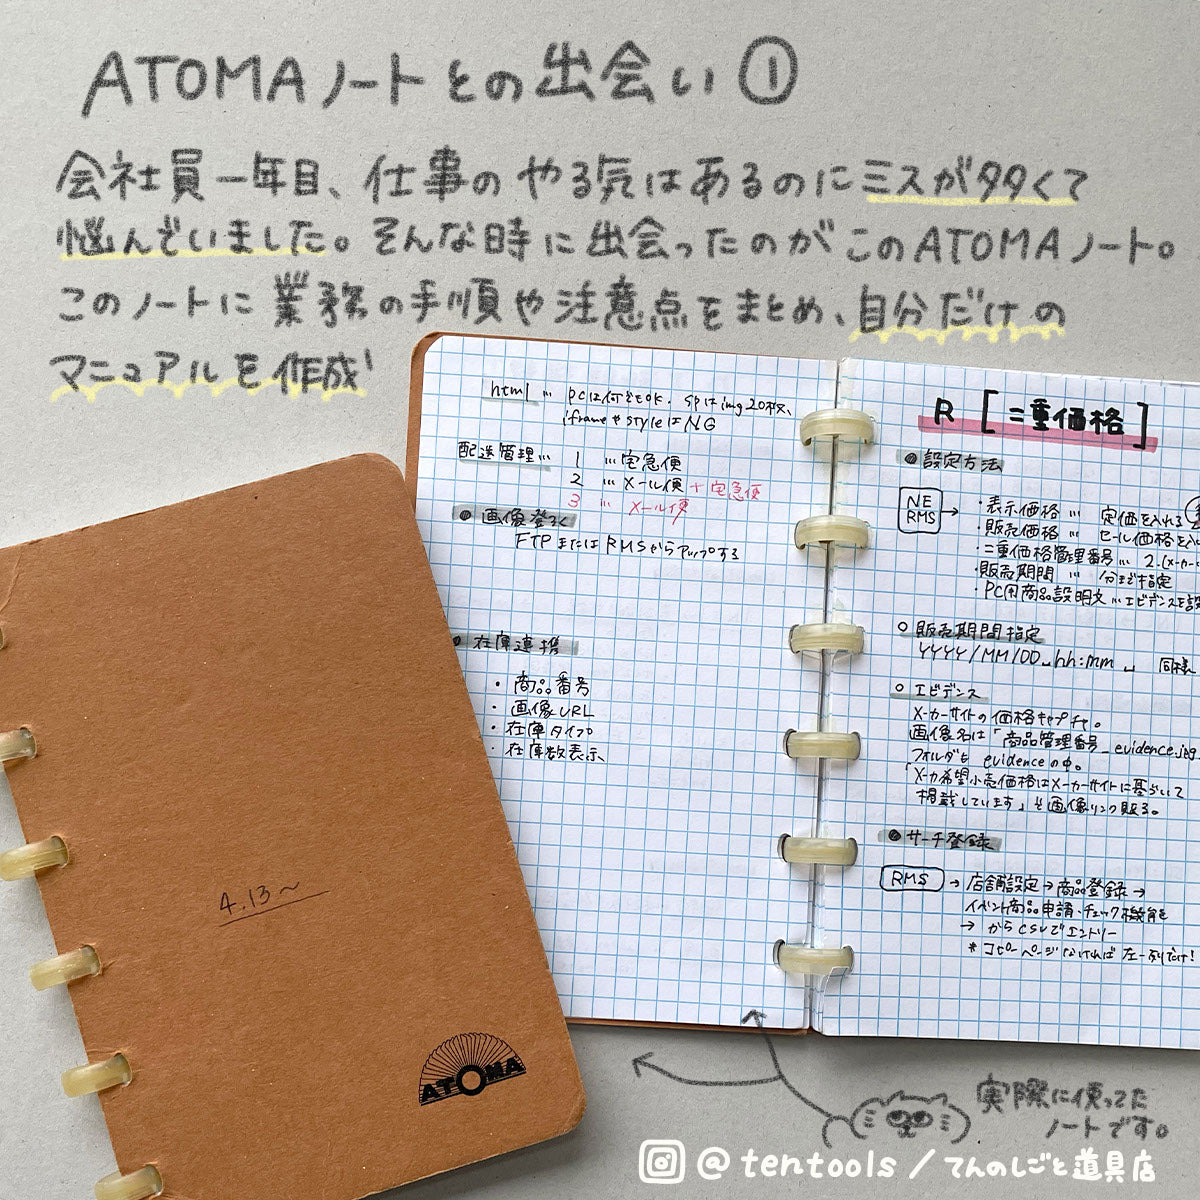 ATOMAノートとの出会い①
会社員一年目、仕事のやる気はあるのにミスが多くて
悩んでいました。そんな時に出会ったのがこのATOMAノート。
このノートに業務の手順や注意点をまとめ、自分だけの
マニュアルを作成!
html … PCは何でもOK. SPはimg20枚、
iframeやstyleはNG
配送管理… 1 …宅急便
2 …メール便+宅急便
3 …メール便
●画像登ろく
FTPまたはRMSからアップする
●在庫連携
・商品番号
・画像URL
・在庫タイプ
・在庫数表示
R [二重価格]
●設定方法
NE
RMS
→
・表示価格 … 定価を入れる
・販売価格 … セール価格を入
・二重価格管理番号 … 2.(メーカー
・販売期間 … 分まで指定
・PC用商品説明文…エビデンスを設
○販売期間指定
YYYY/MM/DD␣hh:mm␣ 同様
○エビデンス
メーカーサイトの価格キャプチャ。
画像名は「商品管理番号_evidence.jpg
フォルダも evidenceの中。
「メーカ希望小売価格はメーカーサイトに基づいて
掲載しています」と画像リンク貼る。
●サーチ登録
RMS→店舗設定→商品登録→
イベント商品申請、チェック機能を
→からCSVでエントリー
*コピーページなければ左一列だけ!
4.13~
ATOMA
実際に使ってた
ノートです。
@tentools/てんのしごと道具店